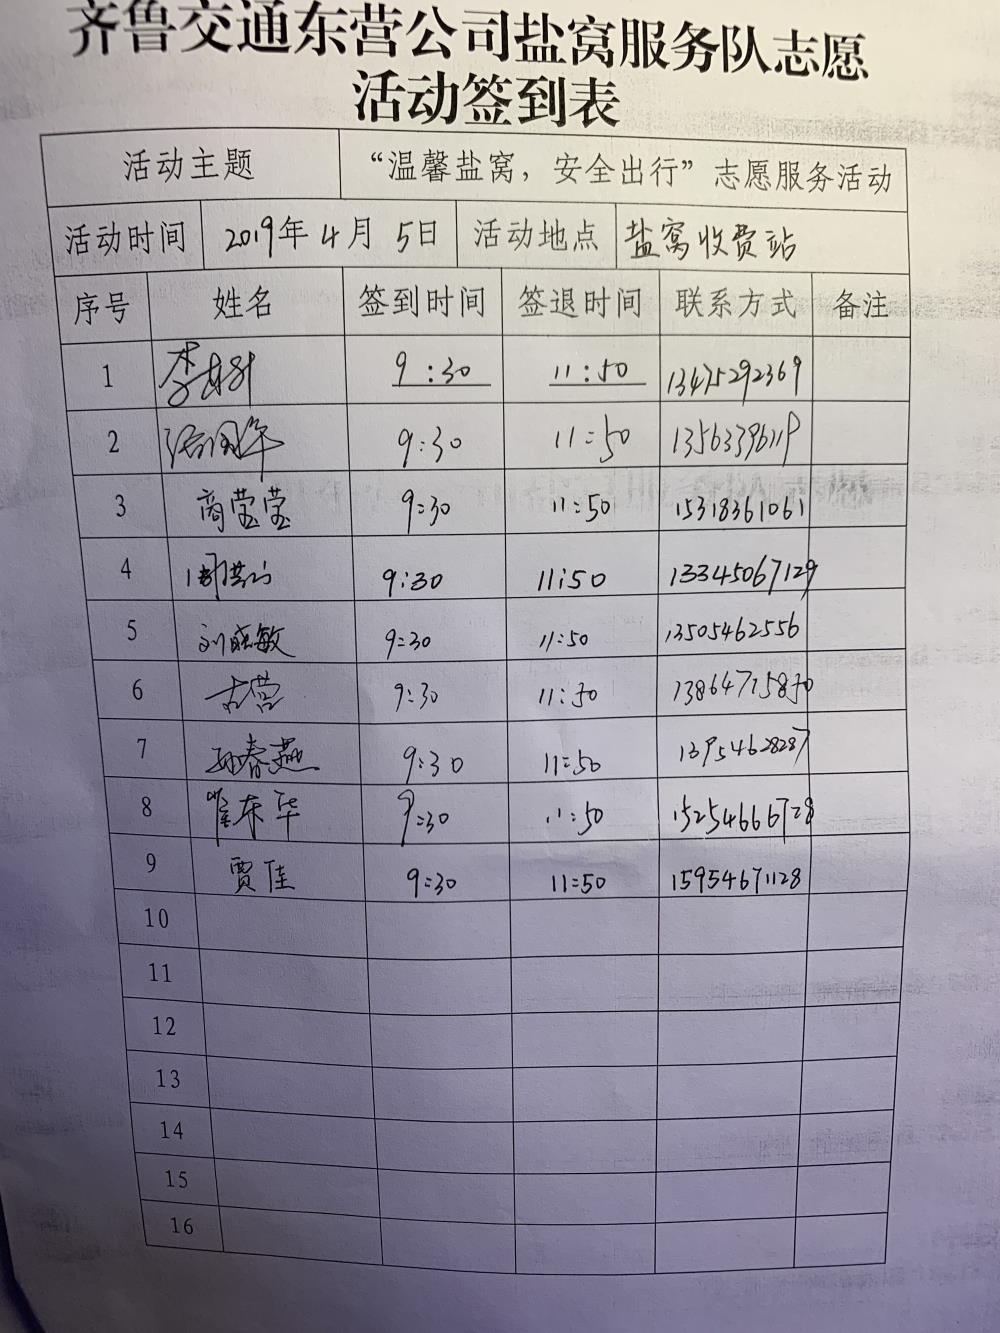 齐鲁交通东营公司盐窝服务队志愿
活动签到表
活动主题 “温馨盐窝，安全出行”志愿服务活动
活动时间 2019年4月5日 活动地点 盐窝收费站
序号 姓名 签到时间 签退时间 联系方式 备注
1 9:30 11:50 13475292369
2 9:30 11:50
3 商莹莹 9:30 11:50 15318361061
4 9:30 11:50 13345067129
5 9:30 11:50 13505462556
6 9:30 11:50
7 孙春燕 9:30 11:50 13954628287
8 崔东华 9:30 11:50 15254666728
9 贾佳 9:30 11:50 15954671128
10
11
12
13
14
15
16